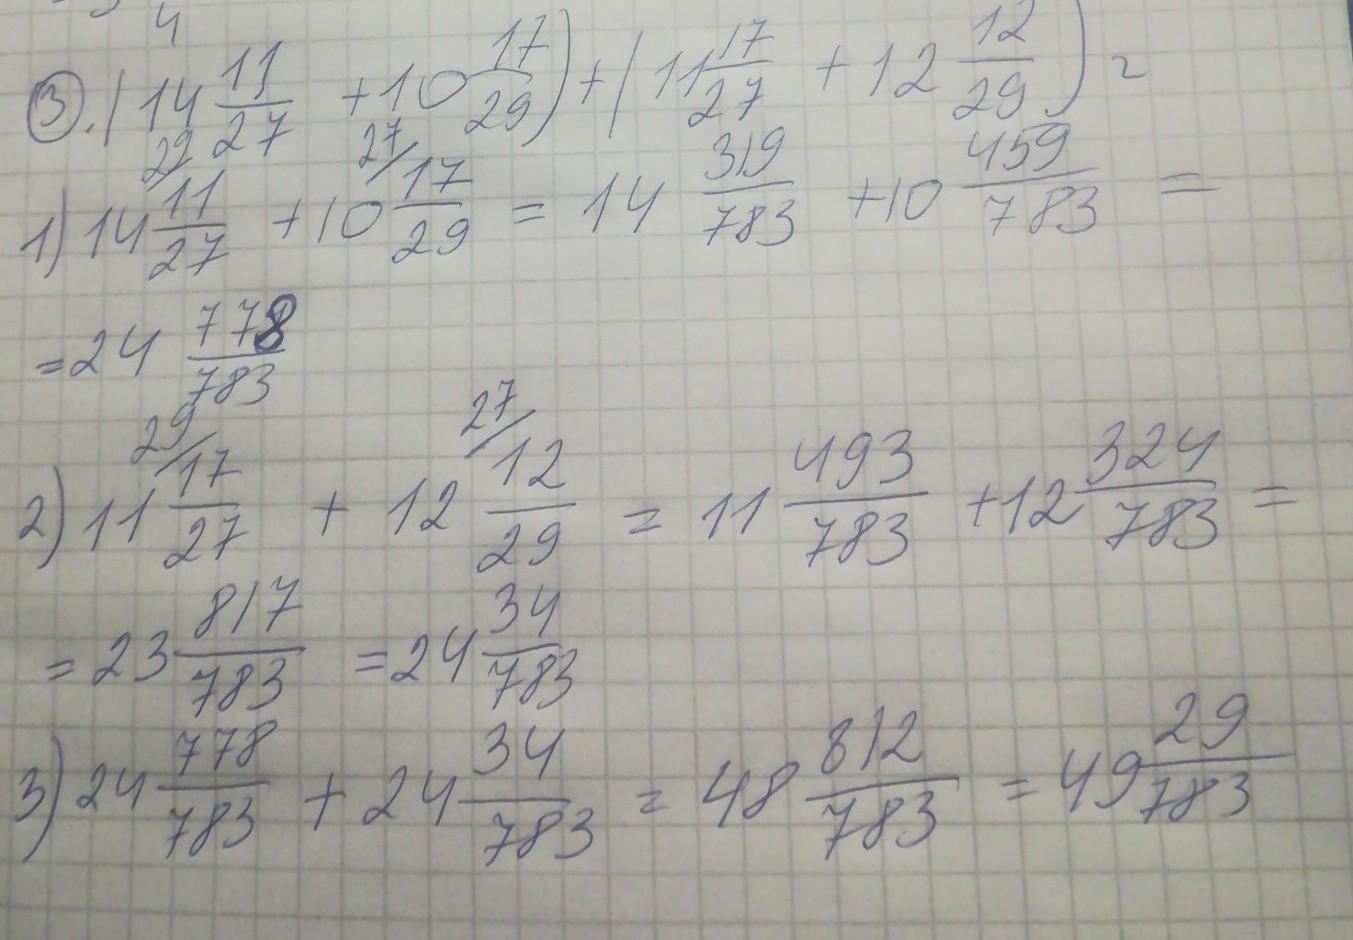 4
③. (14 11/27 + 10 17/29) + (11 17/27 + 12 12/29) =
1) 14 29/ 11/27 + 10 27/ 17/29 = 14 319/783 + 10 459/783 =
= 24 778/783
2) 11 29/ 17/27 + 12 27/ 12/29 = 11 493/783 + 12 324/783 =
= 23 817/783 = 24 34/783
3) 24 778/783 + 24 34/783 = 48 812/783 = 49 29/783